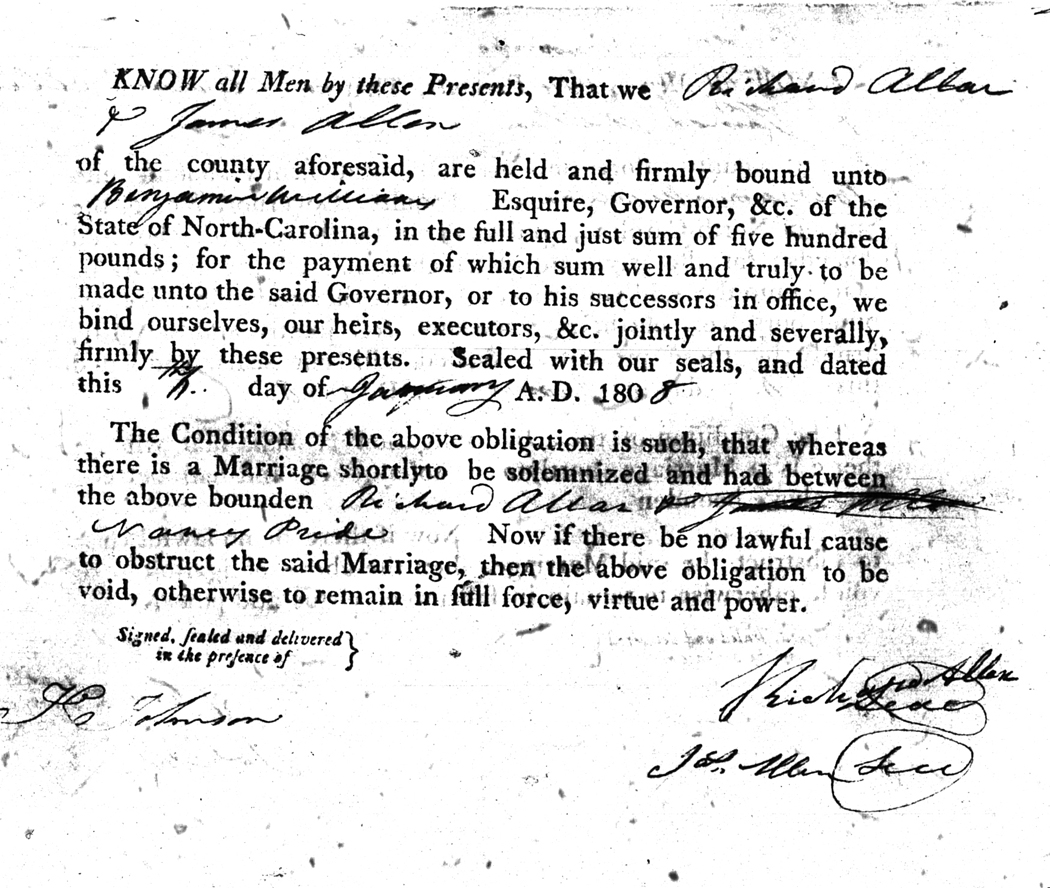 KNOW all Men by these Presents, That we Richard Allan
& James Allen
of the county aforesaid, are held and firmly bound unto
Benjamin Williams Esquire, Governor, &c. of the
State of North-Carolina, in the full and just sum of five hundred
pounds; for the payment of which sum well and truly to be
made unto the said Governor, or to his successors in office, we
bind ourselves, our heirs, executors, &c. jointly and severally,
firmly by these presents. Sealed with our seals, and dated
this day of January A. D. 1808
The Condition of the above obligation is such, that whereas
there is a Marriage shortlyto be solemnized and had between
the above bounden Richard Allan & James Allen
Nancy Pride Now if there be no lawful cause
to obstruct the said Marriage, then the above obligation to be
void, otherwise to remain in full force, virtue and power.
Signed, sealed and delivered }
in the presence of
H Johnson
Richard Allan
Seal
Jas. Allan Seal